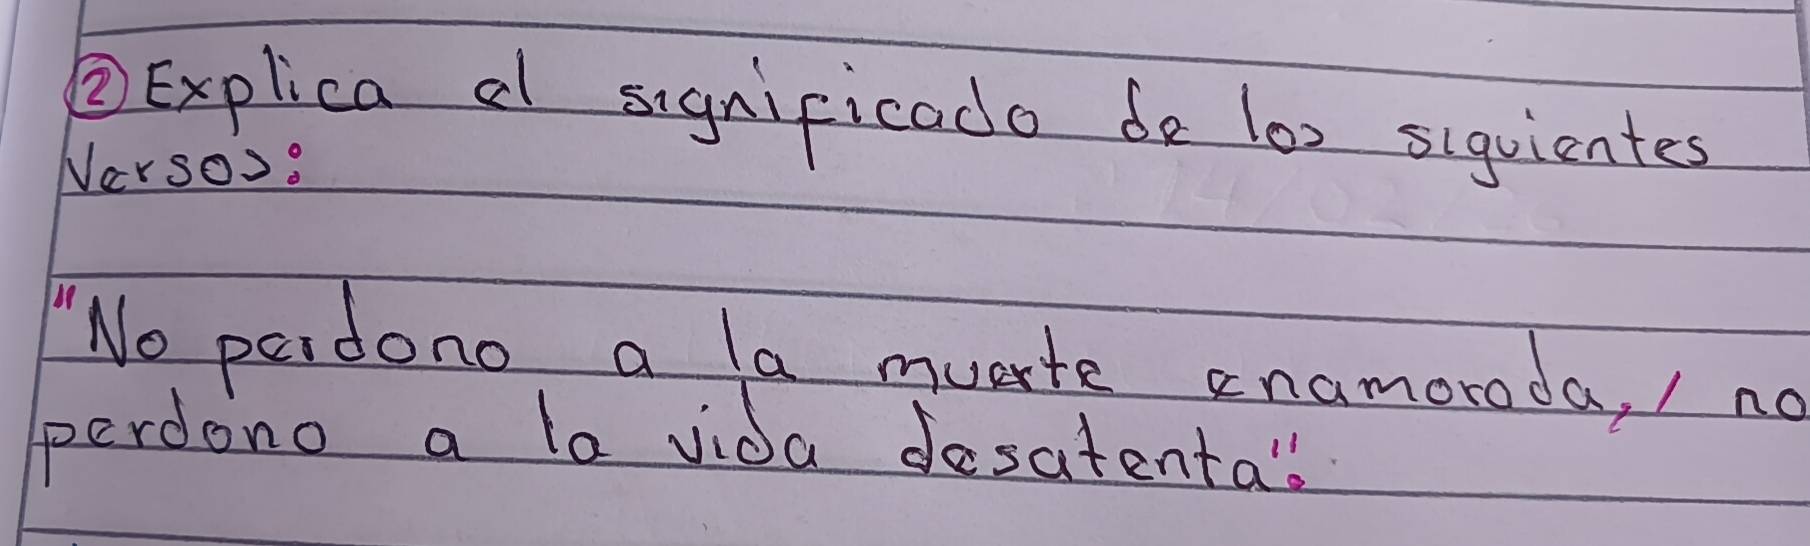 ② Explica el significado de los siguientes
Versos:
"No perdono a la muerte enamorada, / no
perdono a la vida desatenta".